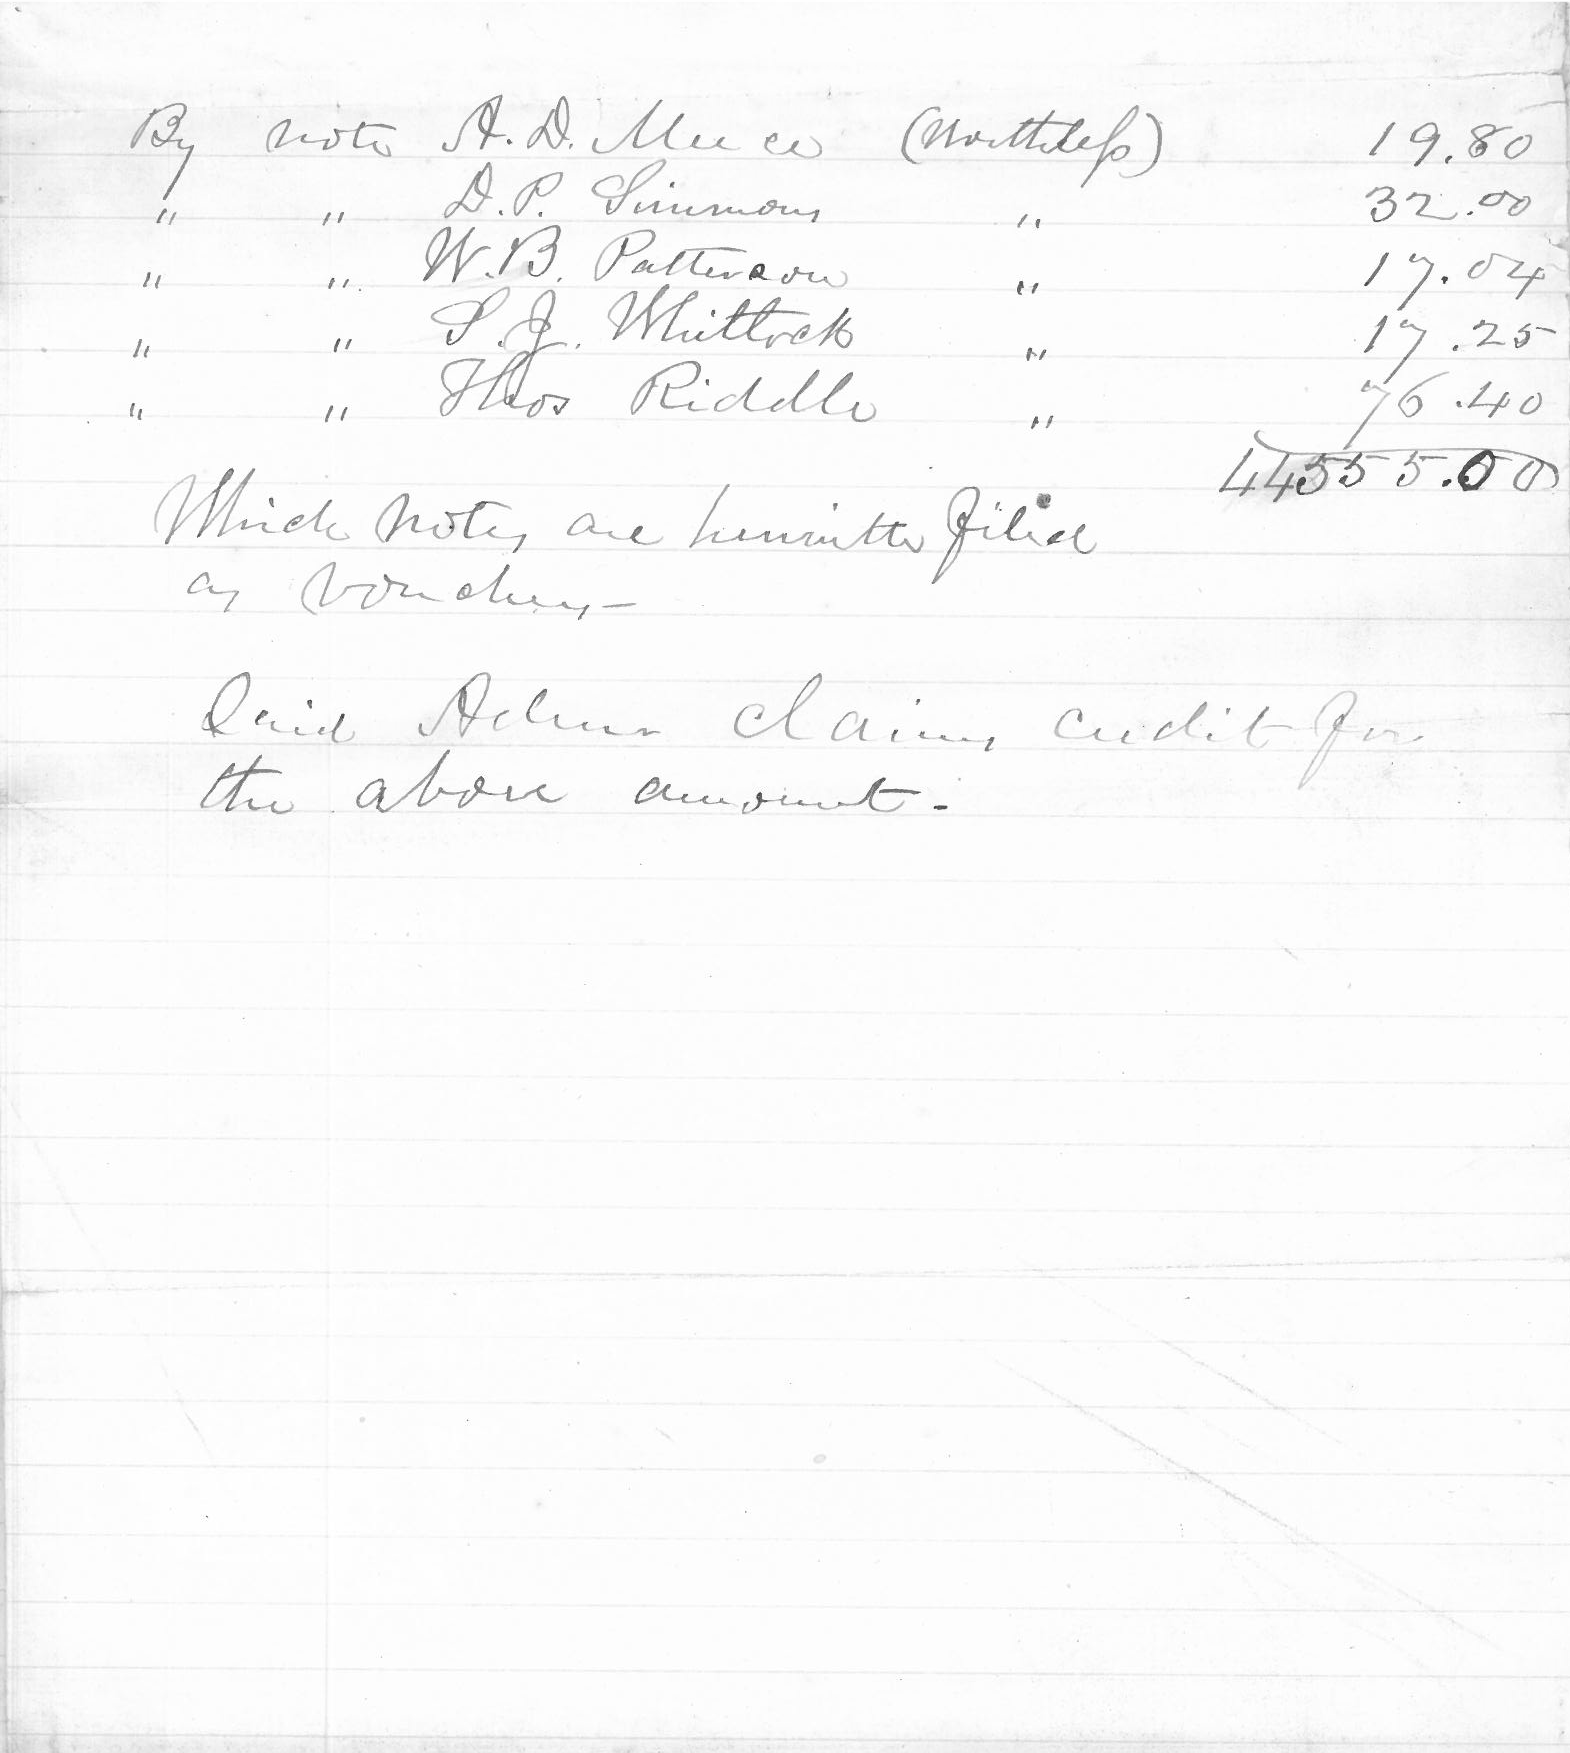 By note A. D. Meece (Worthless) 19.80
" " D. P. Simmons " 32.00
" " W. B. Patterson " 17.04
" " S. J. Whitlock " 17.25
" " Thos Riddle " 76.40
44555.00
Which notes are herewith filed
as vouchers—
Said Admr claims credit for
the above amount.